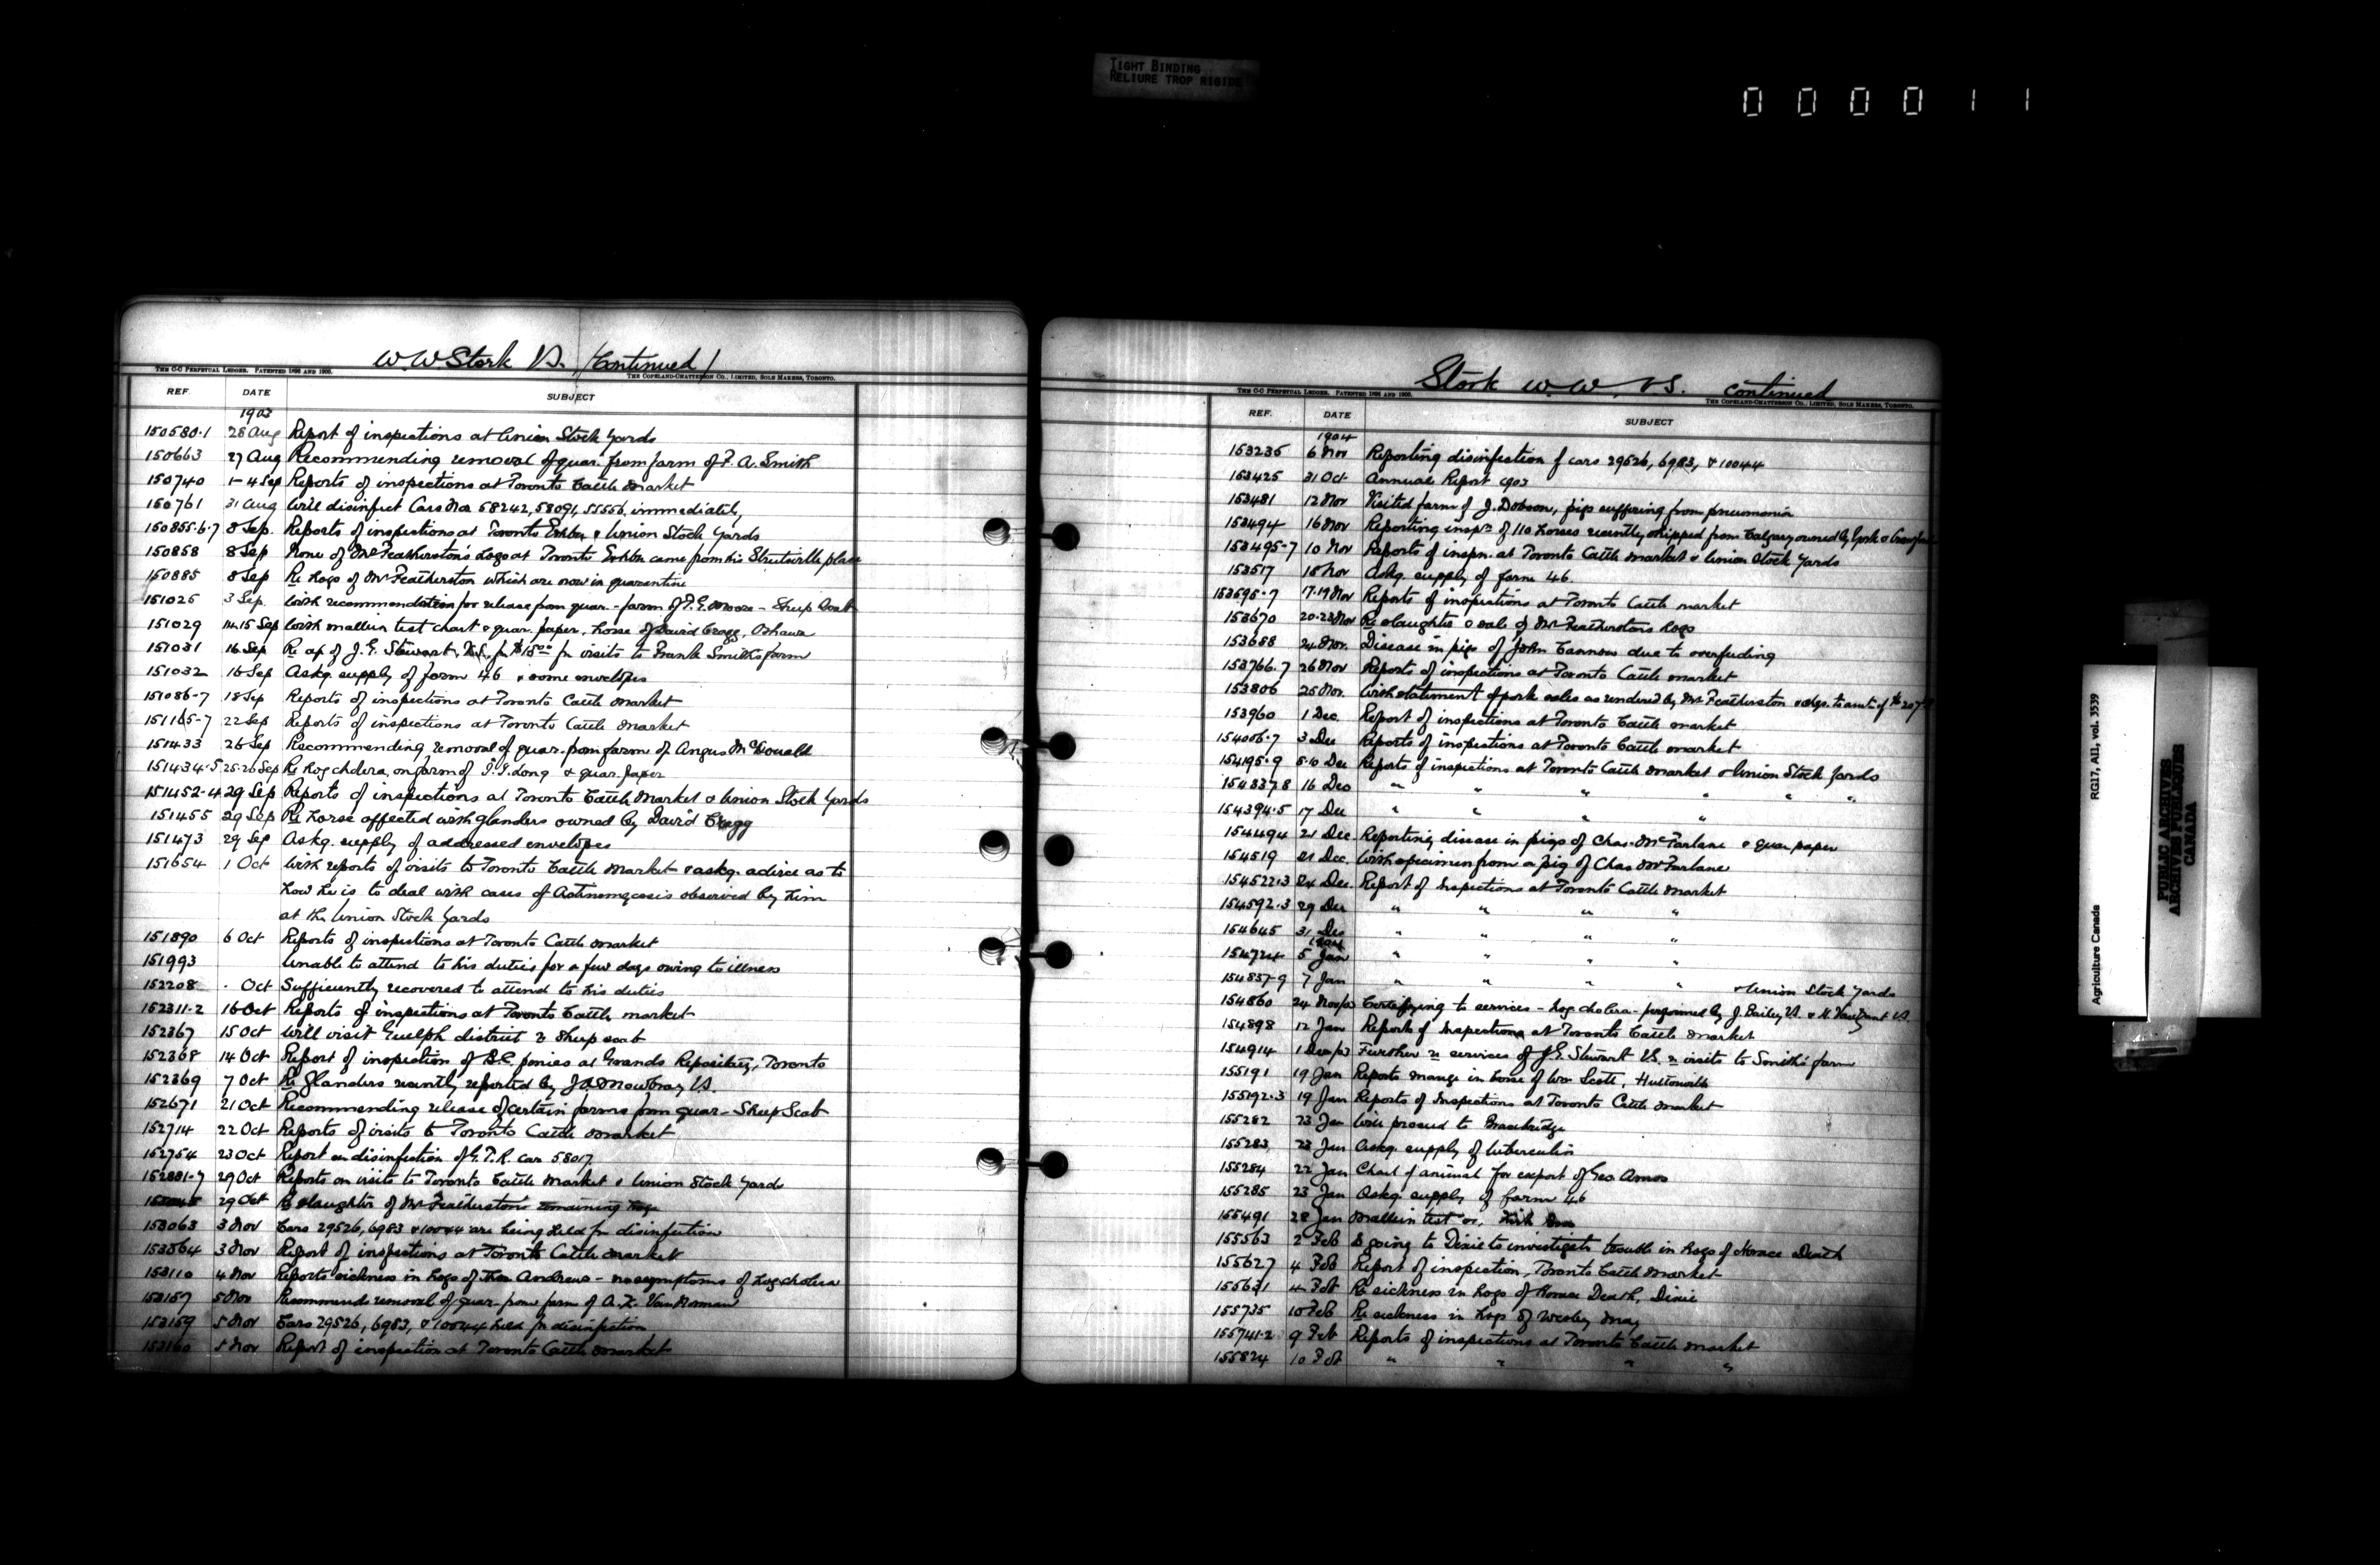 TIGHT BINDING
RELIURE TROP RIGIDE
000011
W. W. Stork V.S. (Continued)
THE C-C PERPETUAL LEDGER. PATENTED 1896 AND 1900.
THE COPELAND-CHATTERSON CO., LIMITED, SOLE MAKERS, TORONTO.
REF. DATE SUBJECT
1903
150580-1 28 Aug Report of inspections at Union Stock Yards
150663 27 Aug Recommending removal of quar. from farm of F. A. Smith
150740 1-4 Sep Reports of inspections at Toronto Cattle Market
150761 31 Aug Will disinfect Cars Nos 58242, 58091, 55556, immediately,
150855-6-7 8 Sep. Reports of inspections at Toronto Exhbn & Union Stock Yards
150858 8 Sep None of Mr Featherston's hogs at Toronto Exhbn came from his Streetsville place
150885 8 Sep Re hogs of Mr Featherston which are now in quarantine
151025 3 Sep. With recommendation for release from quar. - farm of P. E. Moore - Sheep Scab
151029 14-15 Sep With mallein test chart & quar. paper, horse of David Cragg, Oshawa
151031 16 Sep Re ap of J. E. Stewart, V.S. for $15.00 for visits to Frank Smith's farm
151032 16 Sep Askg. supply of form 46 & some envelopes
151086-7 18 Sep Reports of inspections at Toronto Cattle Market
151165-7 22 Sep Reports of inspections at Toronto Cattle Market
151433 26 Sep Recommending removal of quar. from farm of Angus McDonald
151434-5 25-26 Sep Re hog cholera, on farm of Long & quar. paper
151452-4 29 Sep Reports of inspections at Toronto Cattle Market & Union Stock Yards
151455 29 Sep Re horse affected with glanders owned by David Cragg
151473 29 Sep Askg. supply of addressed envelopes
151654 1 Oct With reports of visits to Toronto Cattle Market & askg. advice as to
how he is to deal with cases of Actinomycosis observed by him
at the Union Stock Yards
151890 6 Oct Reports of inspections at Toronto Cattle Market
151993 Unable to attend to his duties for a few days owing to illness
152208 Oct Sufficiently recovered to attend to his duties
152311-2 16 Oct Reports of inspections at Toronto Cattle Market
152367 15 Oct Will visit Guelph district re Sheep scab
152368 14 Oct Report of inspection of B.C. ponies at Grands Repository, Toronto
152369 7 Oct Re Glanders recently reported by J. A. Mowbray V.S.
152671 21 Oct Recommending release of certain farms from quar - Sheep Scab
152714 22 Oct Reports of visits to Toronto Cattle Market
152754 23 Oct Report on disinfection of G.T.R. car 58017
152881-7 29 Oct Reports on visits to Toronto Cattle Market & Union Stock Yards
29 Oct Re slaughter of Mr Featherston's remaining hogs
153063 3 Nov Cars 29526, 6983 & 10044 are being held for disinfection
153064 3 Nov Report of inspections at Toronto Cattle Market
153110 4 Nov Reports sickness in hogs of Thos Andrews - no symptoms of hog cholera
153157 5 Nov Recommends removal of quar from farm of A. Z. VanNorman
153159 5 Nov Cars 29526, 6983, & 10044 held for disinfection
153160 5 Nov Report of inspection at Toronto Cattle Market
Stork W. W. V.S. continued
THE C-C PERPETUAL LEDGER. PATENTED 1896 AND 1900.
THE COPELAND-CHATTERSON CO., LIMITED, SOLE MAKERS, TORONTO.
REF. DATE SUBJECT
1904
153235 6 Nov Reporting disinfection of cars 29526, 6983, & 10044
153425 31 Oct Annual Report 1903
153481 12 Nov Visited farm of J. Dobson, pigs suffering from pneumonia
153494 16 Nov Reporting inspn of 110 horses recently shipped from Calgary owned by York &
153495-7 10 Nov Reports of inspn. at Toronto Cattle Market & Union Stock Yards
153517 18 Nov Askg. supply of form 46.
153595-7 17-19 Nov Reports of inspections at Toronto Cattle Market
153670 20-23 Nov Re slaughter & sale of Mr Featherstons hogs
153688 24 Nov. Disease in pigs of John Cannon due to overfeeding
153766-7 26 Nov Reports of inspections at Toronto Cattle Market
153806 25 Nov. With statement of pork sales as rendered by Mr Featherston & chqs. to amt. of $207
153960 1 Dec. Report of inspections at Toronto Cattle Market
154006-7 3 Dec Reports of inspections at Toronto Cattle Market
154195-9 5-10 Dec Reports of inspections at Toronto Cattle Market & Union Stock Yards
154337-8 16 Dec " " " " " "
154394-5 17 Dec " " " "
154494 21 Dec. Reporting disease in pigs of Chas. McFarlane & quar paper
154519 21 Dec. With specimen from a pig of Chas McFarlane
154522-3 24 Dec. Report of Inspections at Toronto Cattle Market
154592-3 29 Dec " " " "
154645 31 Dec " " " "
1904
154724 5 Jan " " " "
154837-9 7 Jan " " " " & Union Stock Yards
154860 24 Nov/03 Certifying to services - hog cholera - performed by J. Bailey V.S. & H. VanZant V.S.
154898 12 Jan Reports of Inspections at Toronto Cattle Market
154914 1 Dec/03 Further re services of J. E. Stewart V.S. re visits to Smith's farm
155191 19 Jan Reports mange in horse of Wm Scott, Huttonville
155192-3 19 Jan Reports of Inspections at Toronto Cattle Market
155282 23 Jan Will proceed to Bracebridge
155283 23 Jan Askg. supply of tuberculin
155284 22 Jan Chart of animal for export of Geo Amos
155285 23 Jan Askg. supply of form 46
155491 28 Jan Mallein test
155563 2 Feb Is going to Dixie to investigate trouble in hogs of Horace Death
155627 4 Feb Report of inspection, Toronto Cattle Market
155631 4 Feb Re sickness in hogs of Horace Death, Dixie
155735 10 Feb Re sickness in hogs of Wesley May
155741-2 9 Feb Reports of inspections at Toronto Cattle Market
155824 10 Feb " " " "
Agriculture Canada RG17, AII, vol. 3539
PUBLIC ARCHIVES
ARCHIVES PUBLIQUES
CANADA